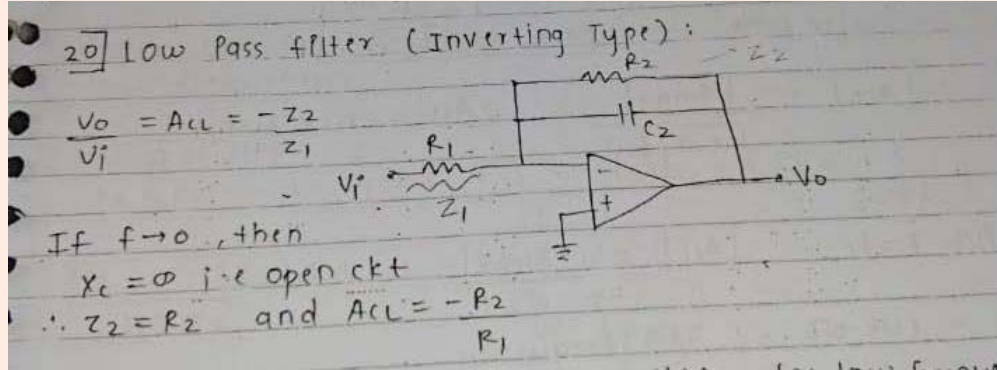 20] Low Pass filter (Inverting Type) :
- Z2
R2
C2
Vo/Vi = ACL = - Z2/Z1
R1
Vi
Z1
-
+
Vo
If f→0, then
Xc = ∞ i.e open ckt
∴ Z2 = R2 and ACL = - R2/R1